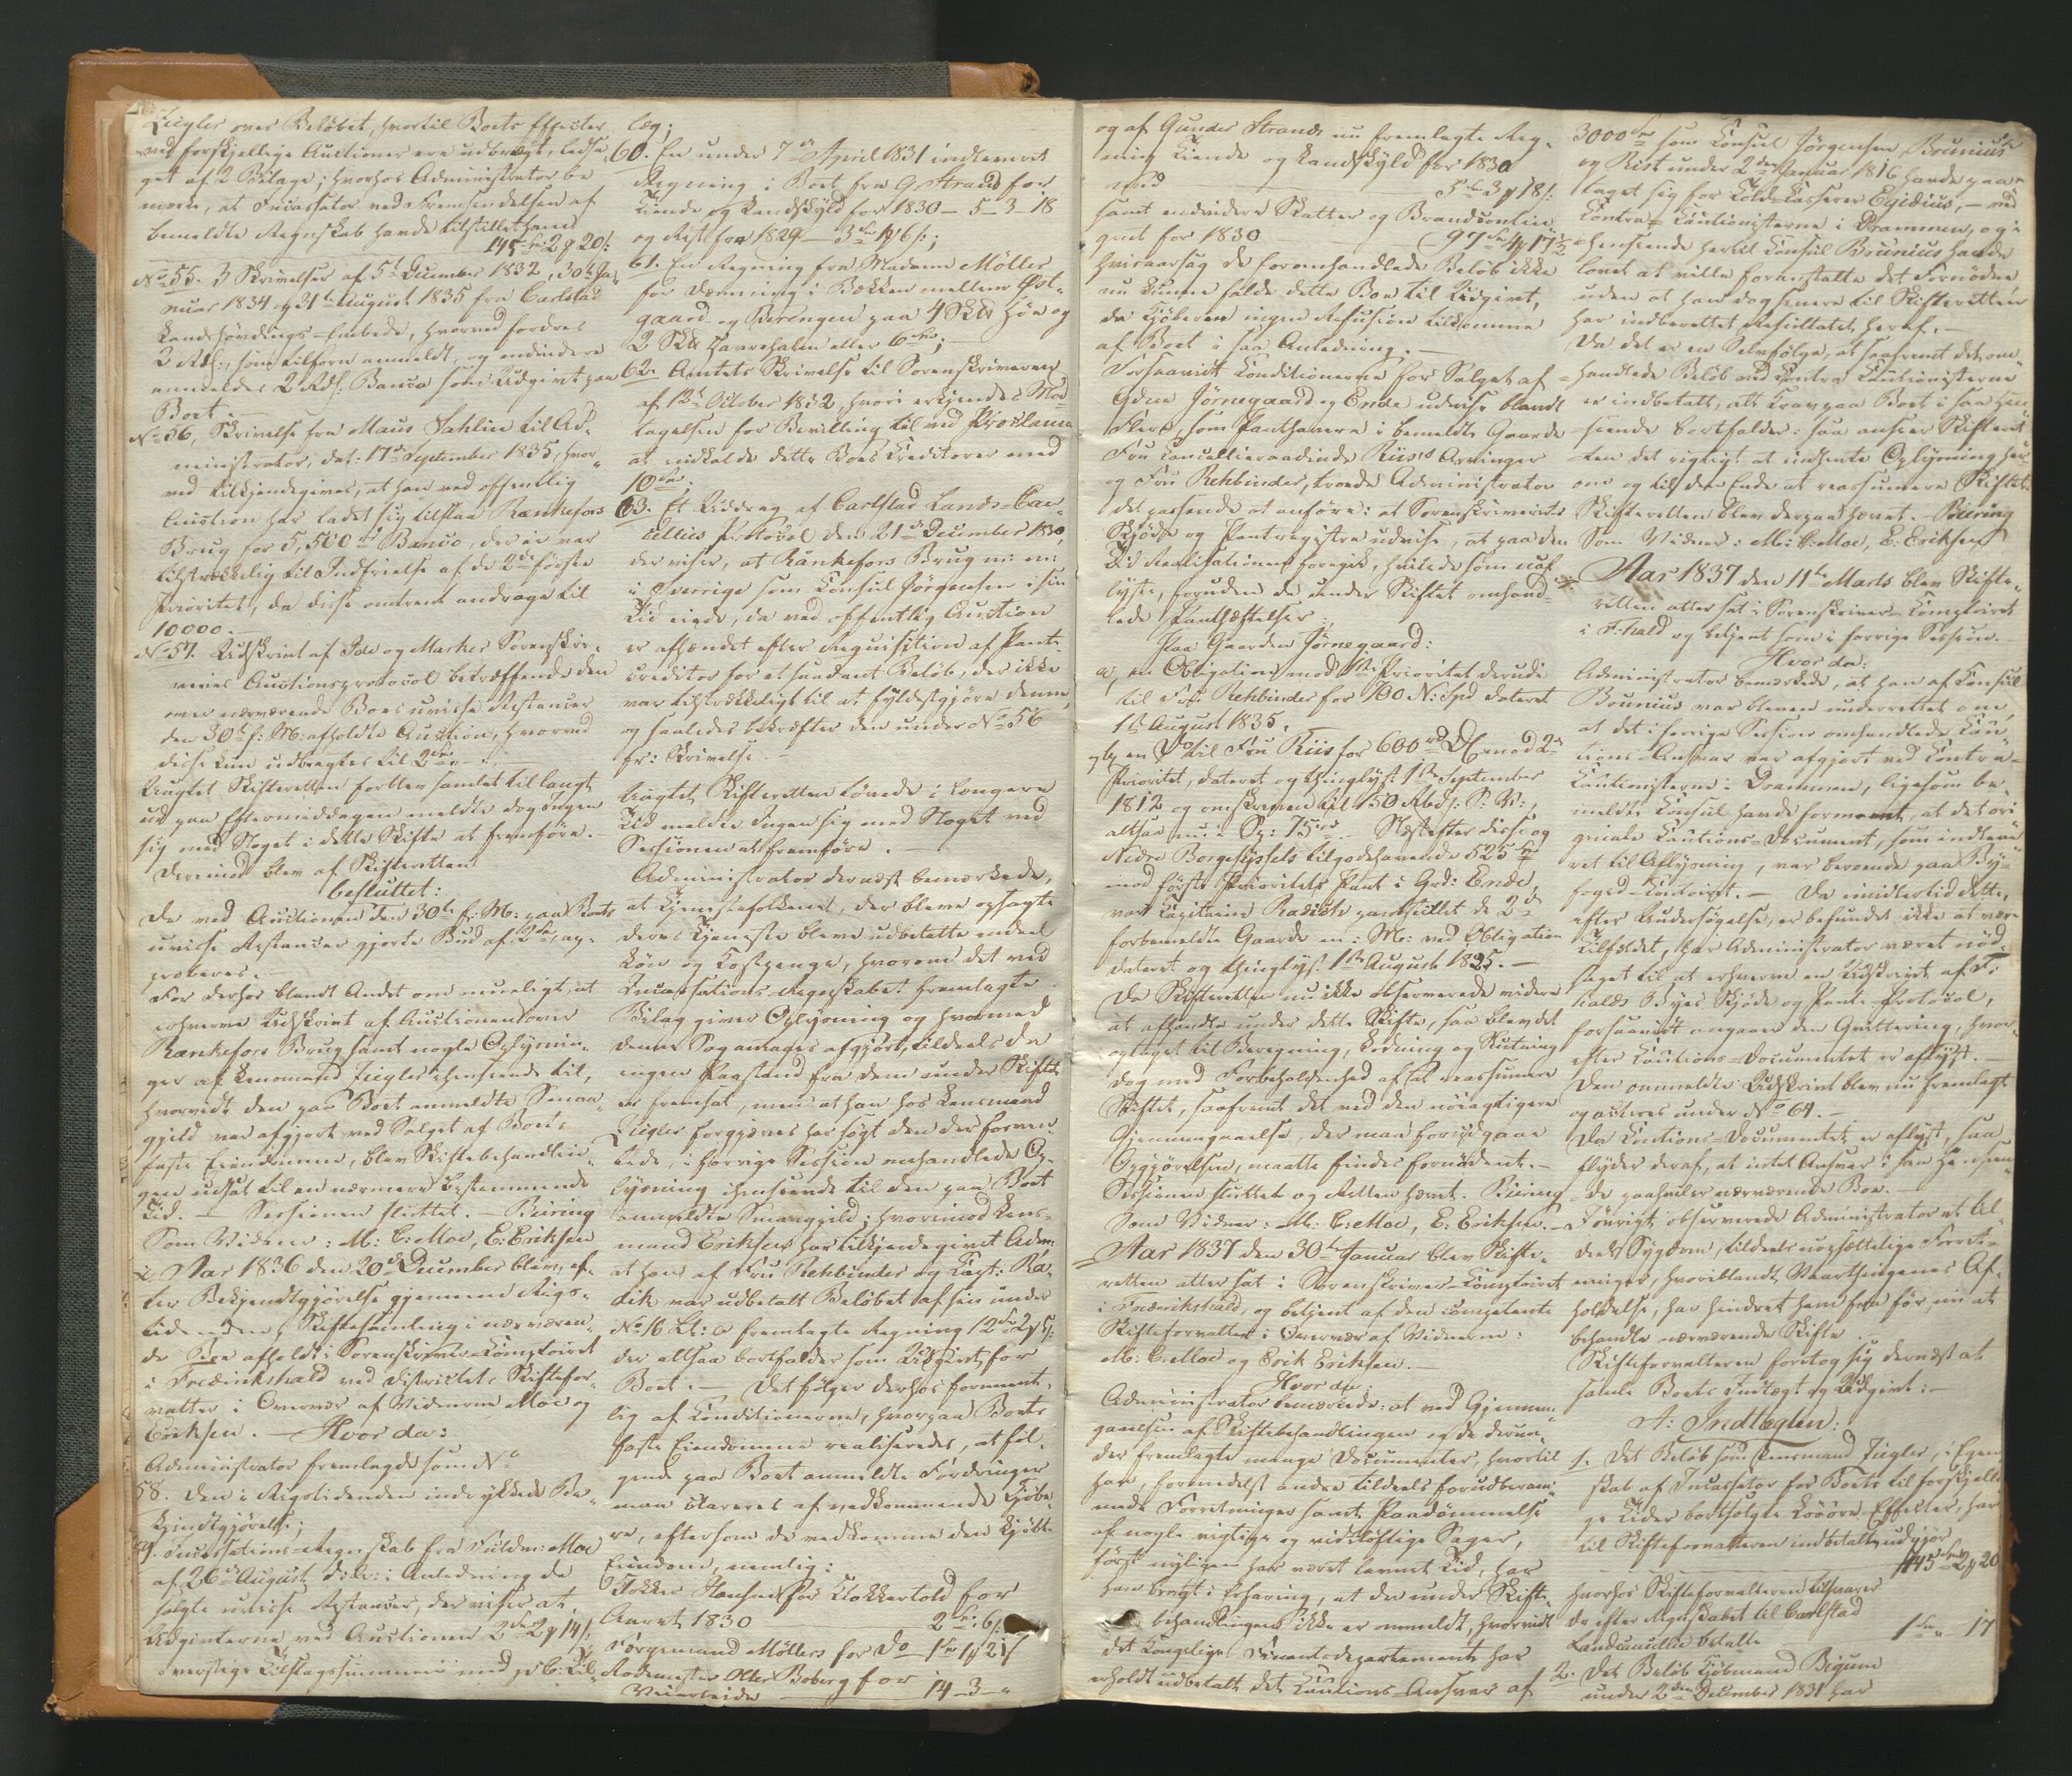 Ziegler over Beløbet, hvortil Boets Effecter
ved forskjellige Auctioner ere udbragt, ledsa-
get af 2 Bilage; hvorhos Administrator be
mærke, at Incassator ved Fremsendelsen af
bemeldte Regnskab havde tilstillet ham
No 55. 3 Skrivelser af 5te December 1832, 30te Ja-
nuar 1834 og 31te August 1835 fra Carlstad
Landshøvdings-Embede, hvorved fordres
2 Rdl:, som tilforn anmeldt, og endvidere
anmeldes 2 Rdl. Banco som Udgivt paa
Boet.
No 56, Skrivelse fra Maus Sahlin til Ad-
ministrator, dat: 17de September 1835, hvor-
ved tilkjendegives, at han ved offentlig
Auction har ladet sig tilslaa Rankefors
Brug for 5,500 rd Banco, der ei var
tilstrækkelig til Indfrielse af de 2de første
Prioritet, da disse omtrent androge til
10000.
No 57. Udskrivt af Ide og Marker Sorenskri-
veries Auctionsprotocol betræffende den
over nærværende Boes uvisse Restancer
den 30te f: M: afholdte Auction, hvorved
disse kun udbragtes til 2
Uagtet Skifteretten forblev samlet til langt
ud paa Eftermiddagen meldte dog Ingen
sig med Noget i dette Skifte at fremføre.
Derimod blev af Skifteretten
besluttet:
De ved Auctionen den 30te f: M: paa Boets
uvisse Restancer gjorte Bud af 2 ap-
proberes.
For derhos blandt Andet om mueligt, at
erhverve Udskrivt af Auctionen over
Rankefors Brug samt nogle Oplysnin-
ger af Lensmand Ziegler i henseende til,
hvorvidt den paa Boet anmeldte
gjeld var afgjort ved Salget af Boets
faste Eiendomme, blev Skiftebehandlin-
gen udsat til en nærmere bestemmende
Tid. — Sessionen sluttet. — Biering
Som Vidner: M: C: Moe, E: Eriksen
Aar 1836 den 20de December blev, ef-
ter Bekjendtgjørelse gjennem Rigs-
tidenden, Skiftesamling i nærværen-
de Boe afholdt i Sorenskriver-Comptoiret
i Fredrikshald ved Districtets Skiftefor-
valter i Overvær af Vidnerne Moe og
Eriksen. — Hvor da:
Administrator fremlagde som No
58. Den i Rigstidenden indrykkede Be-
kjendtgjørelse;
59. Incassations-Regnskab fra Fuldm: Moe
af 26de August i Anledning de
solgte uvisse Restancer, der viser at
Udgivterne ved Auctionen 2 2 14
overstige Tilslagssummen med
læg;
60. En under 7de April 1831 indleveret
Regning i Boet fra G: Strand for
Tiende og Landskyld for 1830 — 5 — 3 — 18
og Rest for 1829 — 3 1 6;
61. En Regning fra Madame Møller
for Dæmning i Bækken mellem Øst-
gaard og Berengen paa 4 Sk℔ Høe og
2 Sk℔ Havrehalm eller 6
62. Amtets Skrivelse til Sorenskriveren
af 13de October 1832, hvori erkjendes Mod-
tagelsen for Bevilling til ved Proclama
at indkalde dette Boes Creditorer med
10
63. Et Uddrag af Carlstad Lands-Can-
cellies Protocol den 21de December 1830,
der viser, at Rankefors Brug
i Sverrige som Consul Jørgensen i sin
Tid eiede, da ved offentlig Auction
er afhændet efter Requisition af Pant-
creditor for et saadant Beløb, der ikke
var tilstrækkeligt til at fyldestgjøre denne,
og saaledes bekræfter den under No 56
fr: Skrivelse.
Uagtet Skifteretten tøvede i længere
Tid meldte Ingen sig med Noget ved
Sessionen at fremføre.
Administrator dernæst bemærkede,
at Tjenestefolkenet, der bleve opsagte
deres Tjeneste bleve udbetalte endeel
Løn og Kostpenge, hvorom det ved
Incassations-Regnskabet fremlagte
Bilag giver Oplysning og hvormed
denne Sag ansees afgjort, tildeels da
ingen Paastand fra dem under Skiftet
er fremsat, men at han hos Lensmand
Ziegler forgjæves har søgt den der forven-
tede, i forrige Session omhandlede Op-
lysning ihenseende til den paa Boet
anmeldte; hvorimod Lens-
mand Eriksen har tilkjendegivet Adm:
at han af Fru Rehbinder og Capt: Ra-
dik var udbetalt Beløbet af sin under
No 16 Lt: a fremlagte Regning 12 2 5
der altsaa bortfalder som Udgivt for
Boet. — Det følger derhos forment-
lig af Conditionerne, hvorpaa Boets
faste Eiendomme realiseredes, at føl-
gende paa Boet anmeldte Fordringer
maa clareres af vedkommende Kjøbe-
re, eftersom de vedkomme den kjøbte
Eiendom, nemlig:
Klokker Hansens for Klokkertold for
Aaret 1830 2 „ 6
Sorgemand Møllers for Do 1 1 21
Rodemester Boberg for
14 — 3 — „
og af Gunder Strands nu fremlagte Reg-
ning Tiende og Landskyld for 1830
med 5 3 18
samt endvidere Skatter og Brandcontin
gent for 1830 97 4 17
hviraarsag de foromhandlede Beløb ikke
nu kunne falde dette Boe til Udgivt,
da Kjøberen ingen Refusion tilkomme
af Boet i saa Anledning. —
Forsaavidt Conditionerne for Salget af
Gdene Jørnegaard og Ende udvise blandt
Flere, som Panthavere i bemeldte Gaarde
Fru Cancellieraadinde Riis's Arvinger
og Fru Rehbinder, troede Administrator
det passende at anføre: at Sorenskriveriets
Skjøde og Pantregistre udviser, at paa den
Tid Realisationen foregik, heftede som uaf
lyste, foruden de under Skiftet omhand-
lede Panthæftelser.
Paa Gaarden Jørnegaard:
a, en Obligation med 1te Prioritet derudi
til Fru Rehbinder for 100 N: Spd dateret
1te August 1835.
og b, en Do til Fru Riis for 600 rd DC mod 2de
Prioritet, dateret og thinglyst 1te September
1812 og omskreven til 150 Rbd: S: V:,
altsaa nu: Sp: 75. Næst efter disse og
Nedre Borgesyssels tilgodehavende 525
mod første Prioritets Pant i Grd: Ende,
var Capitaine Radich pantstillet de 2de
forbemeldte Gaarde m: M: ved Obligation
dateret og thinglyst 1te August 1825. —
Da Skifteretten nu ikke observerede videre
at afhandle under dette Skifte, saa blev det
optaget til Beregning, Lodning og Slutning
dog med Forbeholdenhed af at reassumere
Skiftet, saafremt det ved den nøiagtigere
Gjennemgaaelse, der maa forudgaae
Opgjørelsen, maatte findes fornødent. —
Sessionen sluttet og Retten hævet. Biering
Som Vidner: M: C: Moe, E: Eriksen. —
Aar 1837 den 30te Januar blev Skifte-
retten atter sat i Sorenskriver-Comptoiret
i Fredrikshald, og betjent af den competente
Skifteforvalter i Overvær af Vidnerne:
M: C: Moe og Erik Eriksen. —
Hvor da:
Administrator bemærkede: at ved Gjennem-
gaaelsen af Skiftebehandlingen og de derun-
der fremlagte mange Documenter, hvortil
han, formedelst andre tildeels forudberam-
mede Forretninger samt Paadømmelse
af nogle vigtige og vidtløftige Sager,
først nyligen har været levnet Tid, har
han bragt i Erfaring, at der under Skifte-
behandlingen ikke er anmeldt, hvorvidt
det Kongelige Finantsdepartement har
erholdt udbetalt det Cautions-Ansvar af
3000 som Consul Jørgensen, Brunius
og Rist under 2den Januar 1816 havde paa-
taget sig for Told-Casserer Egidius, — ved
Contra-Cautionisterne i Drammen, og i
henseende hertil Consul Brunius havde
lovet at ville foranstalte det Fornødne
uden at han dog senere til Skifteretten
har indberettet Resultatet heraf. —
Da det er en Selvfølge, at saafremt det om-
handlede Beløb ved Contra Cautionisterne
er indbetalt, alt Krav paa Boet i saa Hen-
seende bortfalder: saa anseer Skifteret-
ten det rigtigt at indhente Oplysning her-
om og til den Ende at reassumere Skiftet.
Skifteretten blev derpaa hævet. — Biering
Som Vidner: M: C: Moe, E: Eriksen
Aar 1837 den 11te Marts blev Skifte-
retten atter sat i Sorenskriver-Comptoiret
i F:hald og betjent som i forrige Session.
Hvor da:
Administrator bemærkede, at han af Consul
Brunius var bleven underrettet om,
at det i forrige Session omhandlede Cau-
tions-Ansvar var afgjort ved Contra-
Cautionisterne i Drammen, ligesom be-
meldte Consul havde formeent, at det ori-
ginale Cautions-Document, som indleve-
ret til Aflysning, var beroende paa By-
foged-Contoiret. — Da imidlertid dette,
efter Undersøgelse, er befundet ikke at være
Tilfældet, har Administrator været nød-
saget til at erhverve en Udskrivt af F:
halds Byes Skjøde og Pante-Protocol,
forsaavidt angaaer den Qvittering, hvor-
efter Cautions-Documentet er aflyst. —
Den anmeldte Udskrivt blev nu fremlagt
og acteres under No 64. —
Da Cautions-Documentet er aflyst, saa
flyder deraf, at intet Ansvar i saa Henseen-
de paahviler nærværende Boe. —
Iøvrigt observerede Administrator at
deels Sygdom, tildeels uopsættelige Forret-
ninger, hvoriblandt Vaarthingenes Af-
holdelse, har hindret ham fra før nu at
behandle nærværende Skifte
Skifteforvalteren foretog sig dernæst at
samle Boets Indtægt og Udgivt: —
A: Indtægten:
1. Det Beløb som Lensmand Ziegler, i Egen-
skab af Incassator for Boets til forskjelli-
ge Tider bortsolgte Løsøre Effecter, har
til Skifteforvalteren indbetalt, udgjør
445 2 20
hvorhos Skifteforvalteren tilsvarer
de efter Regnskabet til Carlstad
Landcancellie betalte 1 „ 17
2. Det Beløb Kjøbmand Bigum
under 2den December 1831 har